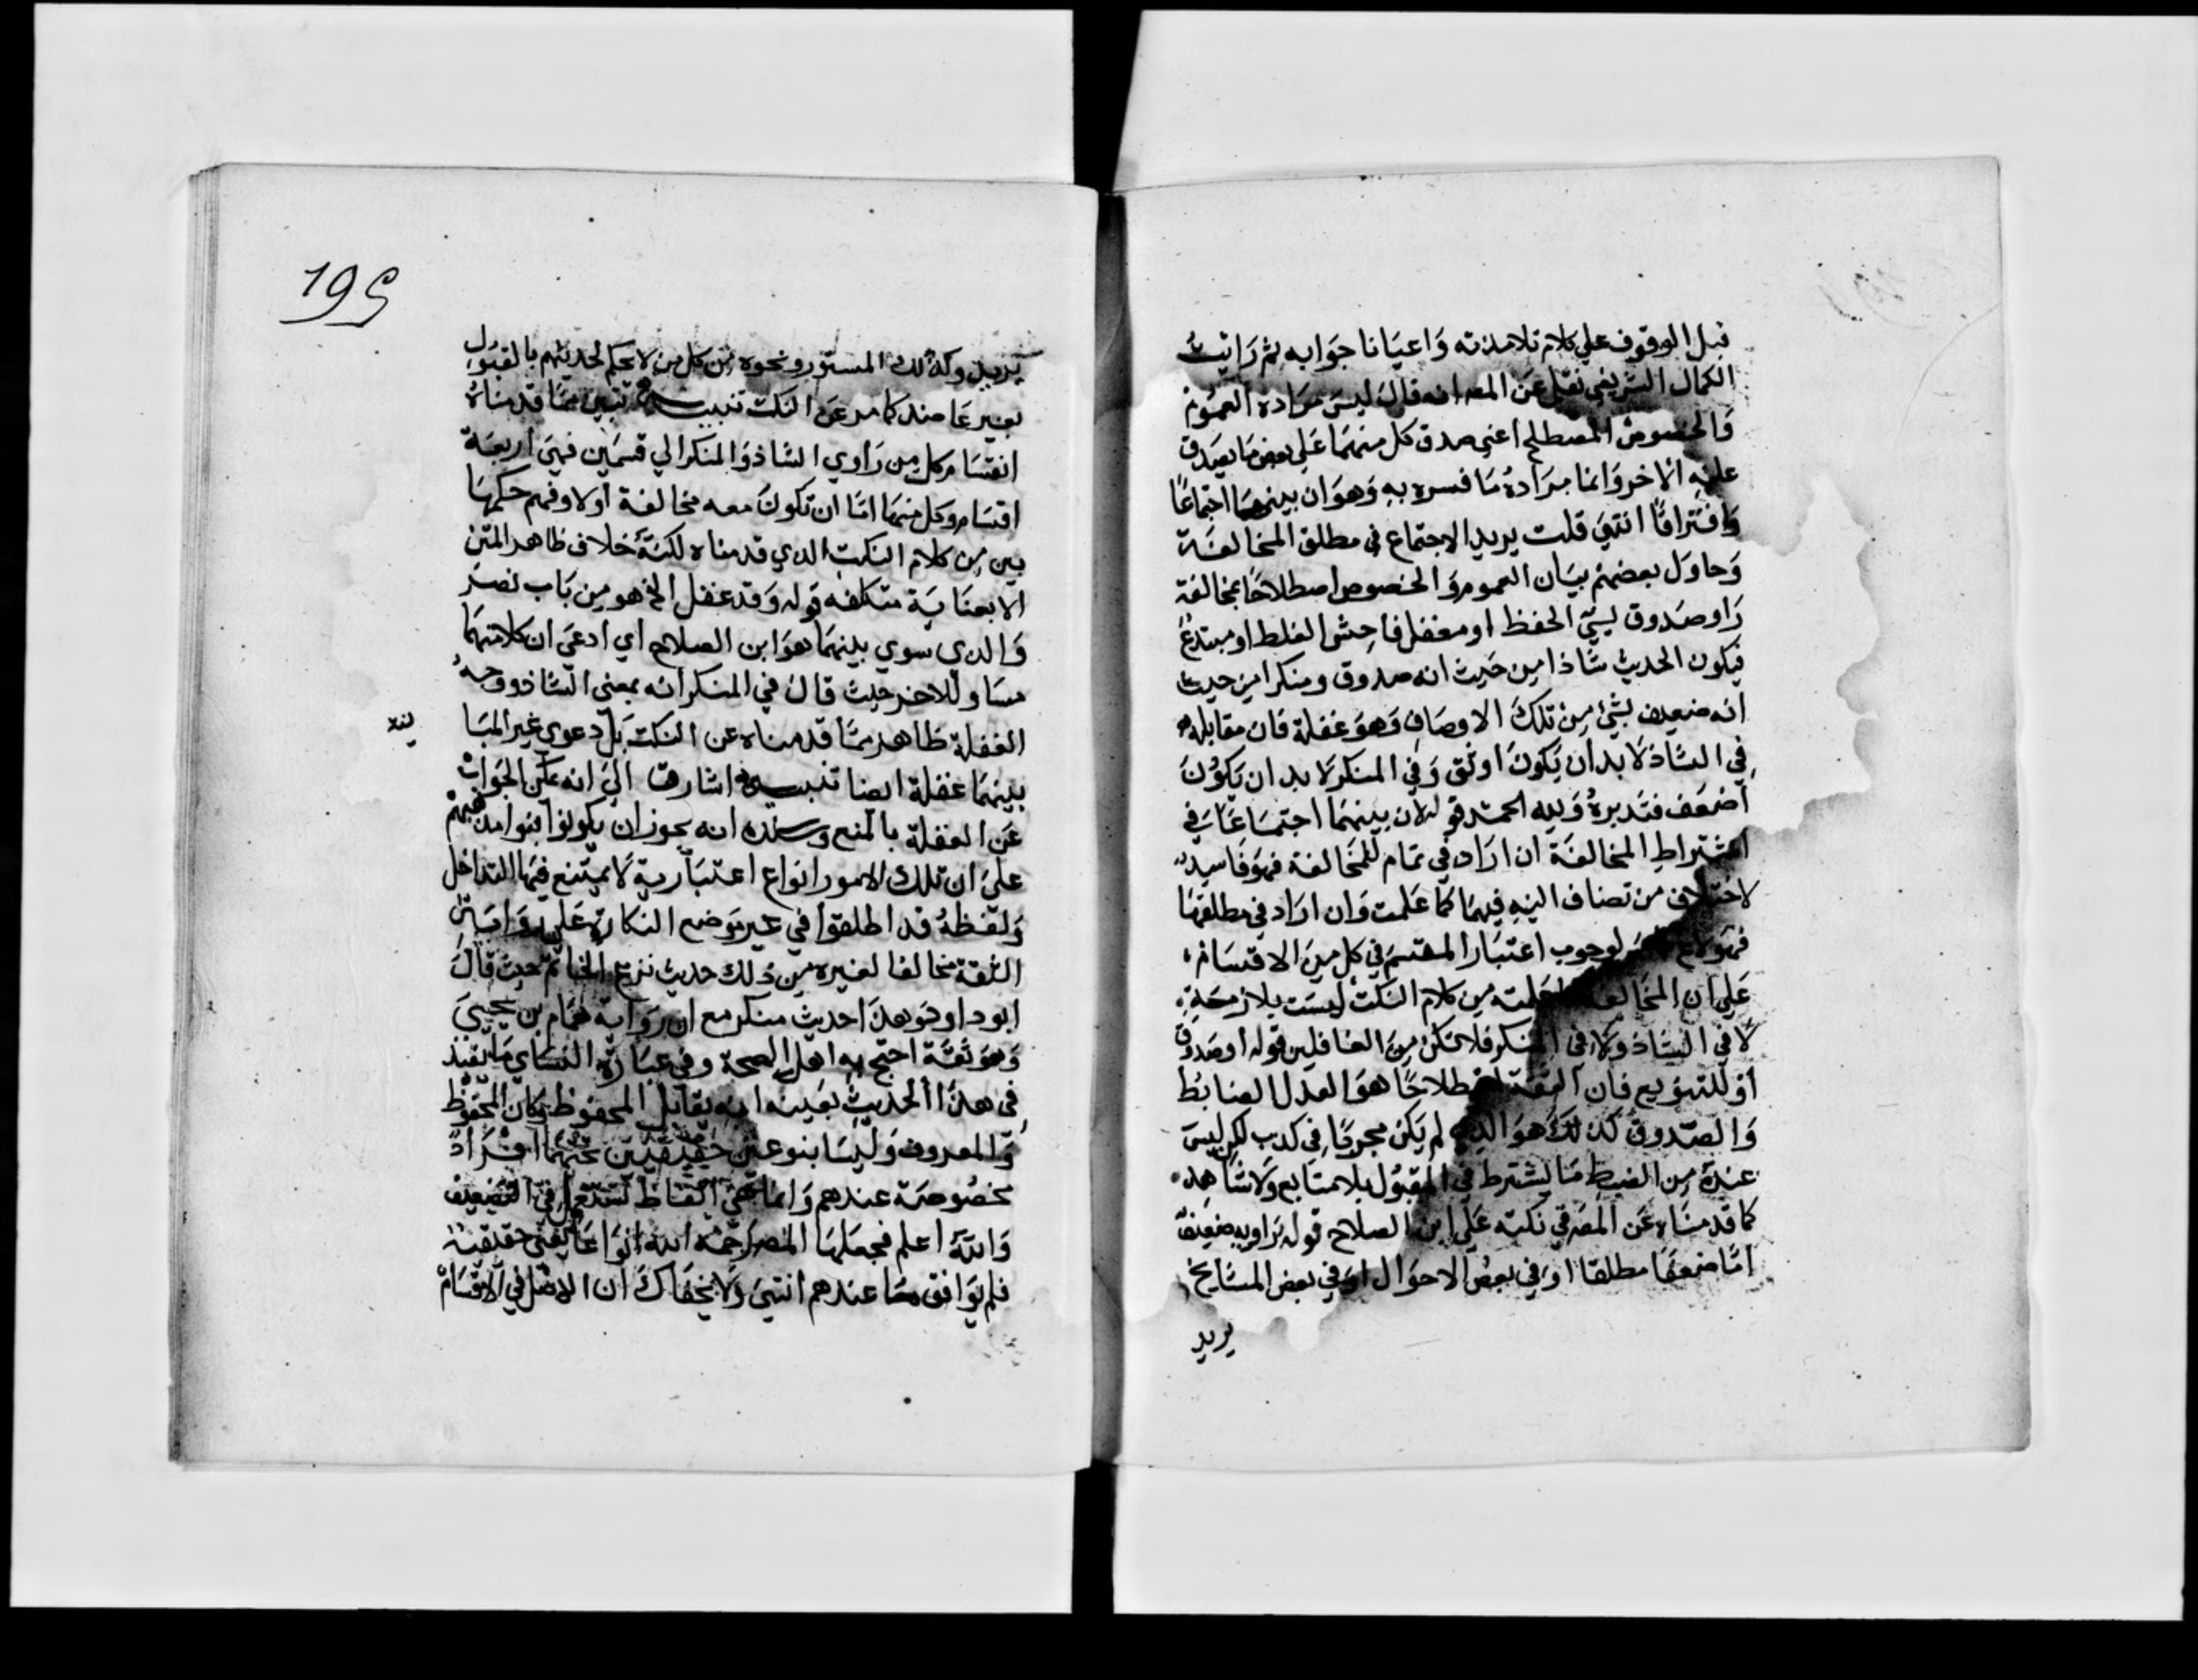 قبل الوقوف علي كلام تلامذته وَاعيَانا جوَابه ثم رَايت
الكمال الشريفي نقل عَن المص انه قال ليسَ مرَاده العموم
وَالخصوص المصطلح اعني صدق كل منهمَا عَلي بعض مَا يصدق
عليه الاخر وَانما مرَاده مَا فسره به وَهوَ ان بينهمَا اجتماعًا
وَافترَاقًا انتهي قلت يريد الاجتماع في مطلق المخالفة
وَحاوَل بعضهم بيَان العموم وَالخصوص اصطلاحًا بمخالفة
رَاو صَدوق لسيّ الحفظ او مغفل فاحش الغلط او مبتدع
فيكون الحديث شاذا من حَيث انه صدوق ومنكرا من حيث
انه ضعيف بشيْ من تلكَ الاوصَاف وَهوَ غفلة فان مقابله
في الشاذ لَابد ان يَكونَ اوثق وَفي المنكر لَابد ان يَكونَ
اضعَف فتدبره وَلِله الحمد قوله لان بينهمَا اجتمَاعًا في
اشتراطِ المخالفَة ان ارَاد في تمام المخَالفة فهوَ فَاسِد
لاختلاف من تضاف اليه فيهمَا كمَا عَلمت وَان ارَاد في مطلقهَا
لوجوب اعتبَار المقسَم في كل منَ الاقسَام
عَلي ان المخَالفة من كلام النكت ليسَت بلازمَة
لَا في الشاذ وَلَا في المنكر فلا تكن منَ الغافلين قوله اوصدوق
او للتنويع فان الثقة اصطلاحًا هوَ العدل الضابط
وَالصَّدوق كذلكَ هوَ الذي لم يَكن مجروحًا في كذب لكن ليسَ
عندهَ من الضبطِ مَا يشترط في المقبُول بلا متابع وَلَاشاهِد
كما قدمنَاه عَن المصَ في نكته عَلي ابن الصلاح قوله رَاويه ضعيف
امَّا ضعفًا مطلقا اوَ في بعضُ الاحوَال اوَ في بعض المشايخ
يريد
195
يريد وكذلك المستور ونحوه من كل من لايحكم لحديثهم بالقبُول
بغير عَاضد كما مر عَن النكت تنبيه تبين ممَّا قدمنَاه
انقسَام كل من رَاوي الشاذ وَالمنكر الي قسمَين فهيَ اربعَة
اقسَام وكل منهمَا امَّا ان تكونَ معه مخالفة اوَلا وفهم حكمهَا
بين من كلام النكت الذي قدمناه لكنهَّ خلاف ظاهر المتن
الا بعنَايَة متكلفه قوله وَقد غفل الخ هو من بَاب نصرَ
وَالذي سوي بينهمَا هوَ ابن الصلاح اي ادعيَ ان كلامنهمَا
مسَاو للاخر حَيث قالَ في المنكر انه بمعني الشاذ ووَجه
الغفلة ظاهر ممَّا قدمناه عن النكت بَل دعوي غير المبَا
ينه
بينهمَا غفلة ايضا تنبيه اشار ق اليَ انه يمكن الجوَاب
عَن الغفلة بالمنع وسنده انه يجوز ان يكونوَا بنوا مذهبهم
عليَ ان تلك الامور انواع اعتبَارية لَا يمتنع فيهَا التداخل
وَلفظهُ قد اطلقوا في غير مَوضع النكارة عَلي روَاية
الثقة مخالفا لغيره من ذلك حديث نزع الخاتم حيث قالَ
ابوداود هذَا حديث منكر مع ان روَاية همَام بن يحييَ
وَهوَ ثقَة احتج به اهل الصحة وفي عبَارة النسَاي مَا يفيد
في هذَا الحديث بعَينه انه يقابل المحفوظ وكان المحفوظ
وَالمعروف وَليسَا بنوعين حَقيقيّين تحتهُمَا افرَاد
مخصُوصَة عندهم وَانما هيَ الفاظ تستعمل في التضعيف
وَاللهُ اعلم فجعَلهَا المصَ رَحمَهُ الله انوَاعًا حَقيقة
فلم يوَافق مَا عندهم انتهيَ وَلَا يخفَاكَ ان الاصل في الاقسَام